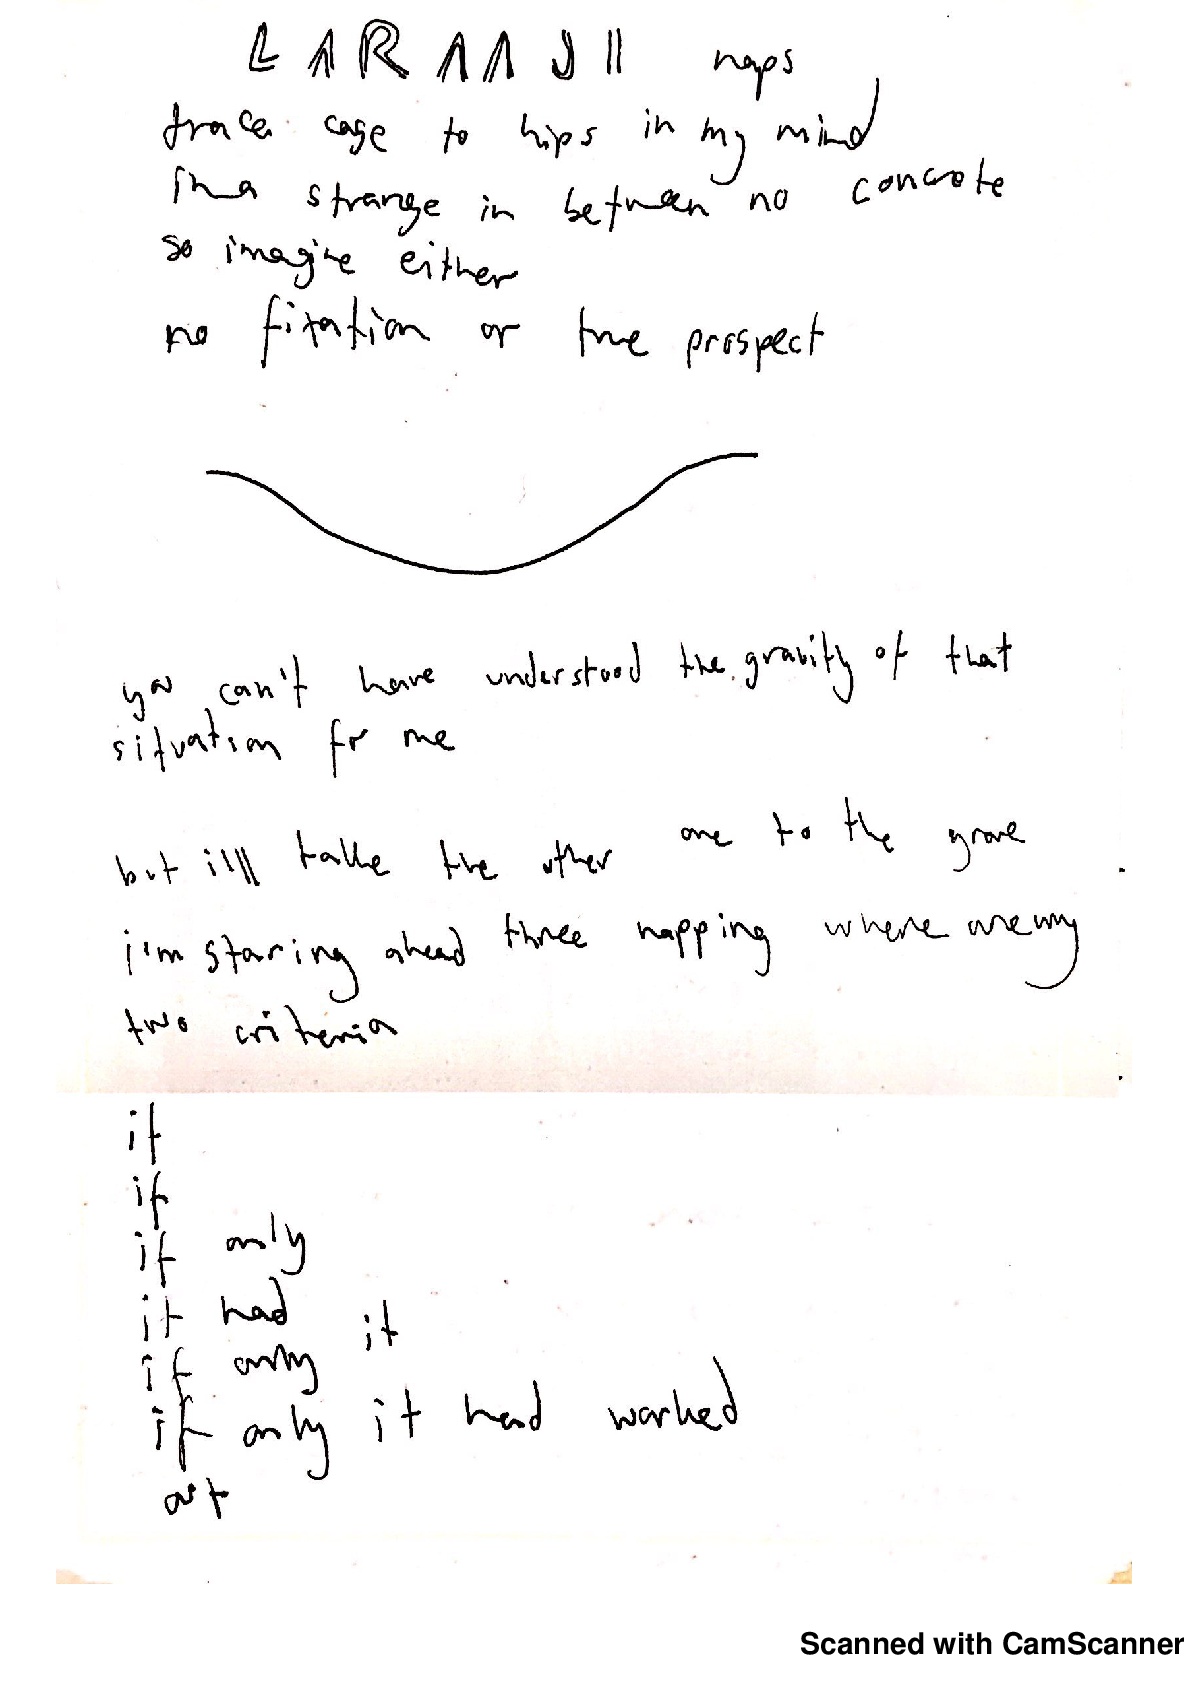 LARAAJI naps
trace cage to hips in my mind
in a strange in between no concrete
so imagine either
no fixation or true prospect
you can't have understood the gravity of that
situation for me
but i'll take the other one to the grave
i'm staring ahead three napping where are my
two criteria
if
if
if only
it had
if only it
if only it had worked
out
Scanned with CamScanner